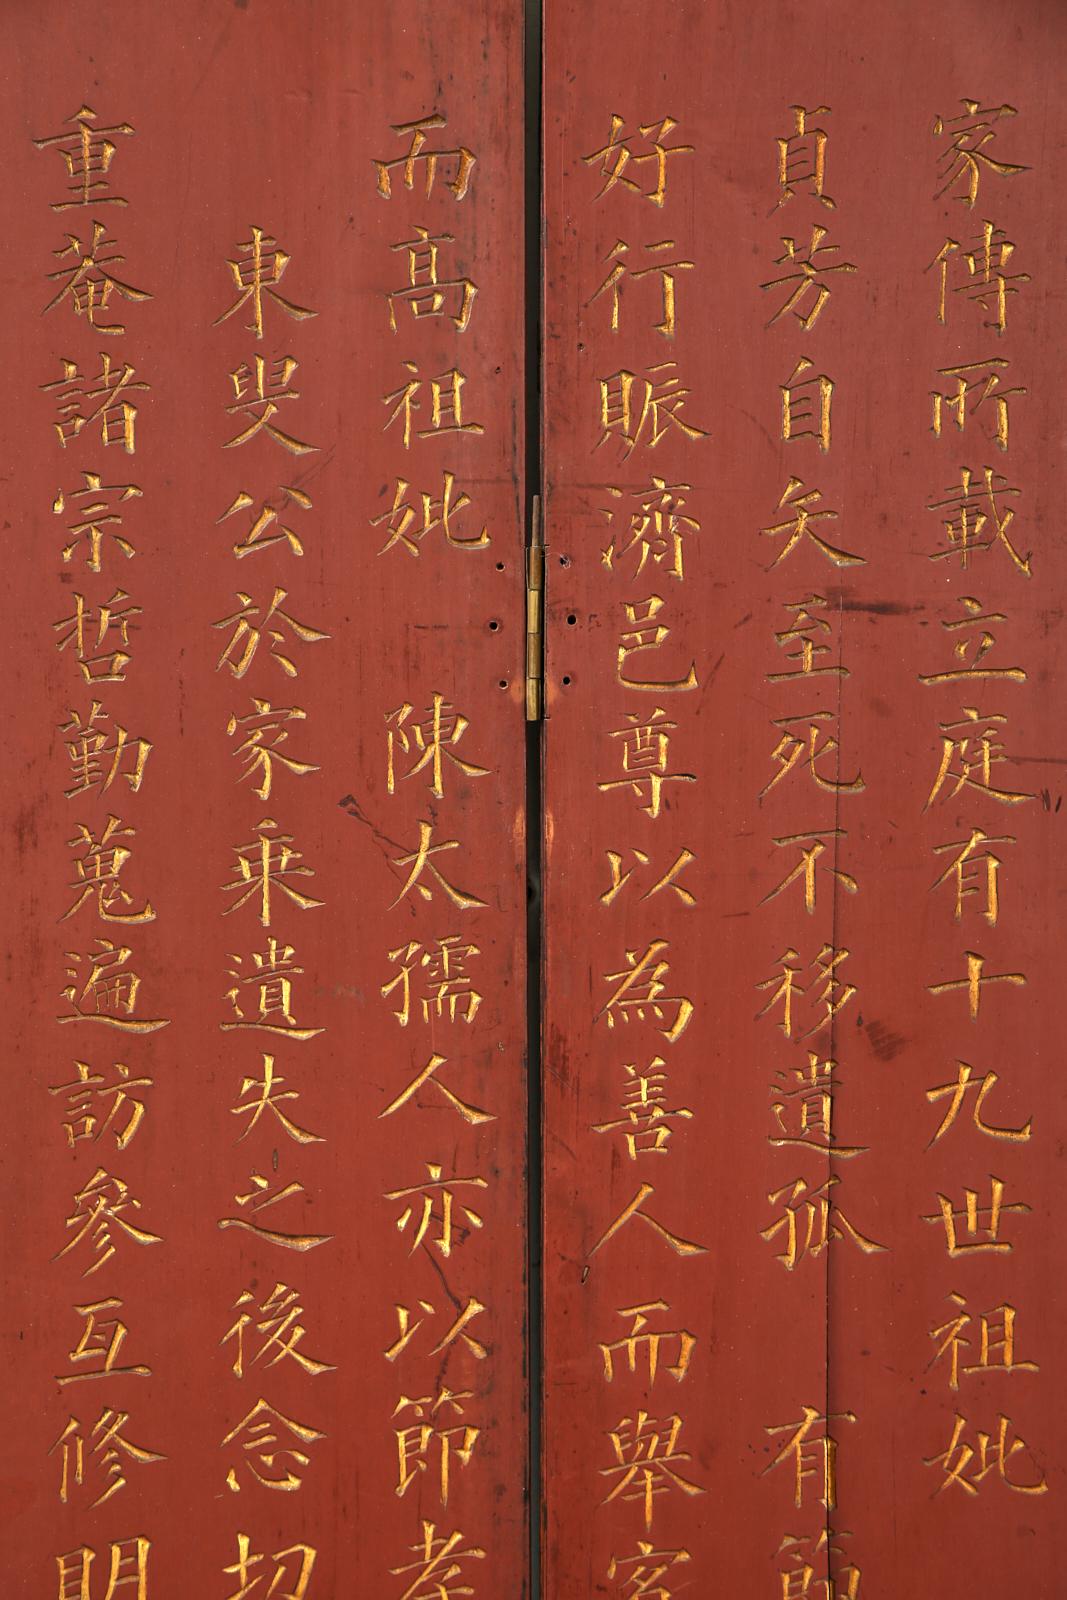 家傳所載立庭有十九世祖妣
貞芳自矢至死不移遺孤　有節
好行賑濟邑尊以為善人而舉
而高祖妣　陳太孺人亦以節孝
東叟公於家乗遺失之後念切
重菴諸宗哲勤蒐遍訪參互修明